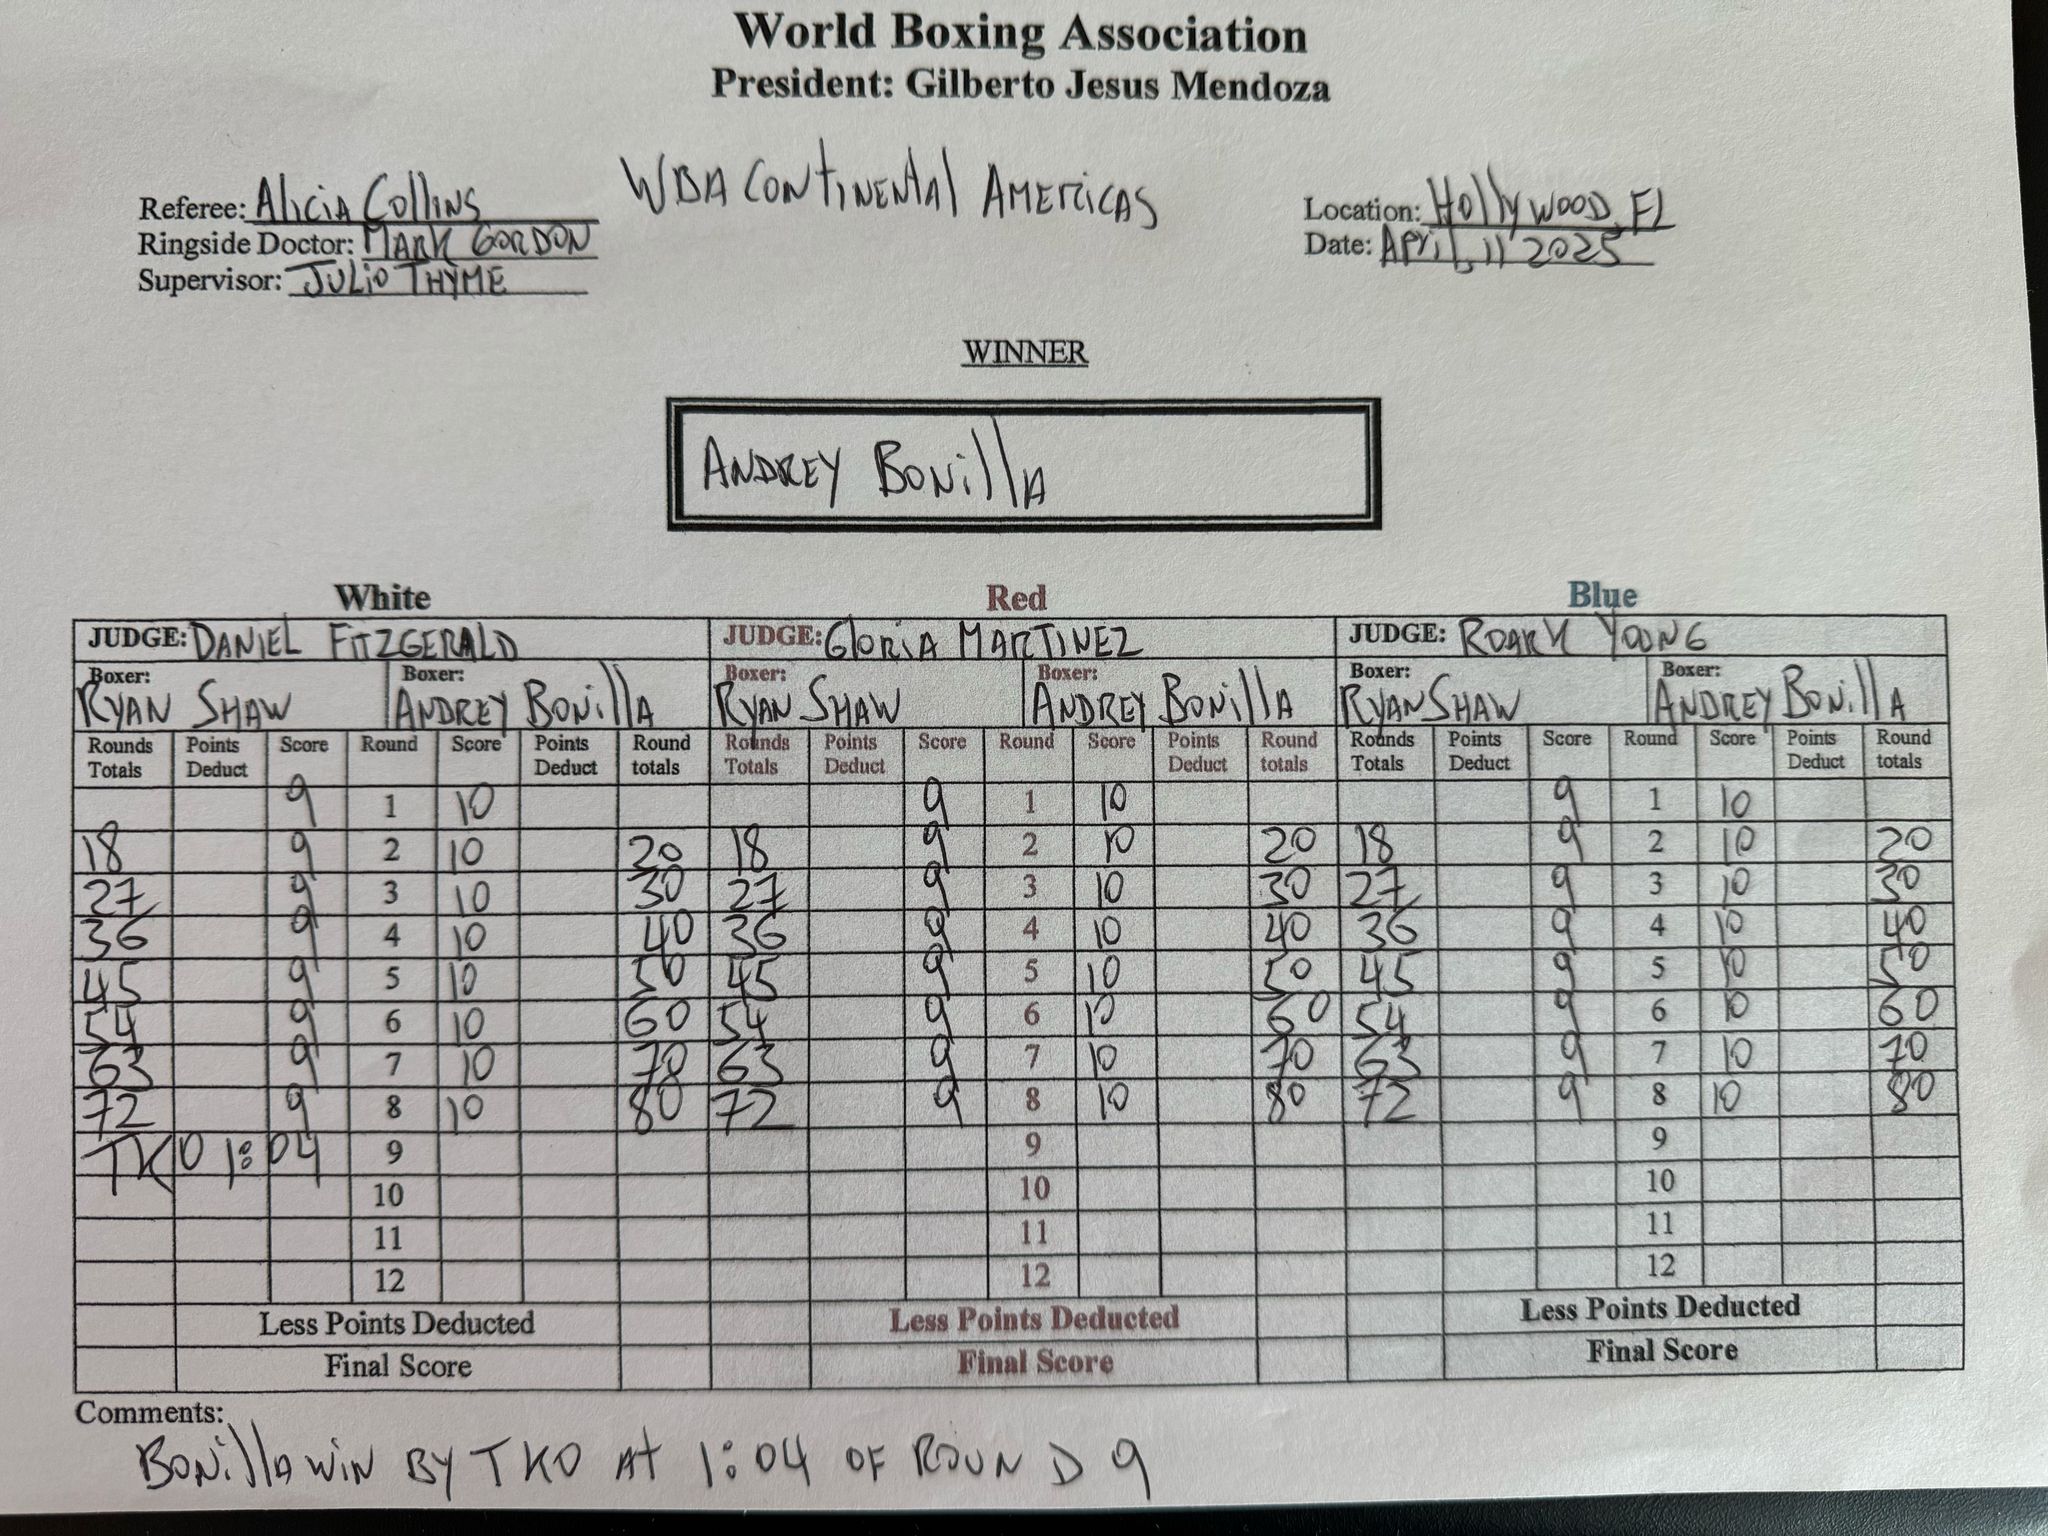 World Boxing Association
President: Gilberto Jesus Mendoza
WBA Continental Americas
Referee: Alicia Collins
Ringside Doctor: Mark Gordon
Supervisor: Julio Thyme
Location: Hollywood, FL
Date: April, 11 2025
WINNER
Andrey Bonilla
White Red Blue
JUDGE: Daniel Fitzgerald JUDGE: Gloria Martinez JUDGE: Roark Yoong
Boxer: Boxer: Boxer: Boxer: Boxer: Boxer:
Ryan Shaw Andrey Bonilla Ryan Shaw Andrey Bonilla Ryan Shaw Andrey Bonilla
Rounds Points Score Round Score Points Round Rounds Points Score Round Score Points Round Rounds Points Score Round Score Points Round
Totals Deduct Deduct totals Totals Deduct Deduct totals Totals Deduct Deduct totals
9 1 10 9 1 10 9 1 10
18 9 2 10 20 18 9 2 10 20 18 9 2 10 20
27 9 3 10 30 27 9 3 10 30 27 9 3 10 30
36 9 4 10 40 36 9 4 10 40 36 9 4 10 40
45 9 5 10 50 45 9 5 10 50 45 9 5 10 50
54 9 6 10 60 54 9 6 10 60 54 9 6 10 60
63 9 7 10 70 63 9 7 10 70 63 9 7 10 70
72 9 8 10 80 72 9 8 10 80 72 9 8 10 80
TKO 1:04 9 9 9
10 10 10
11 11 11
12 12 12
Less Points Deducted Less Points Deducted Less Points Deducted
Final Score Final Score Final Score
Comments:
Bonilla win by TKO at 1:04 of Round 9